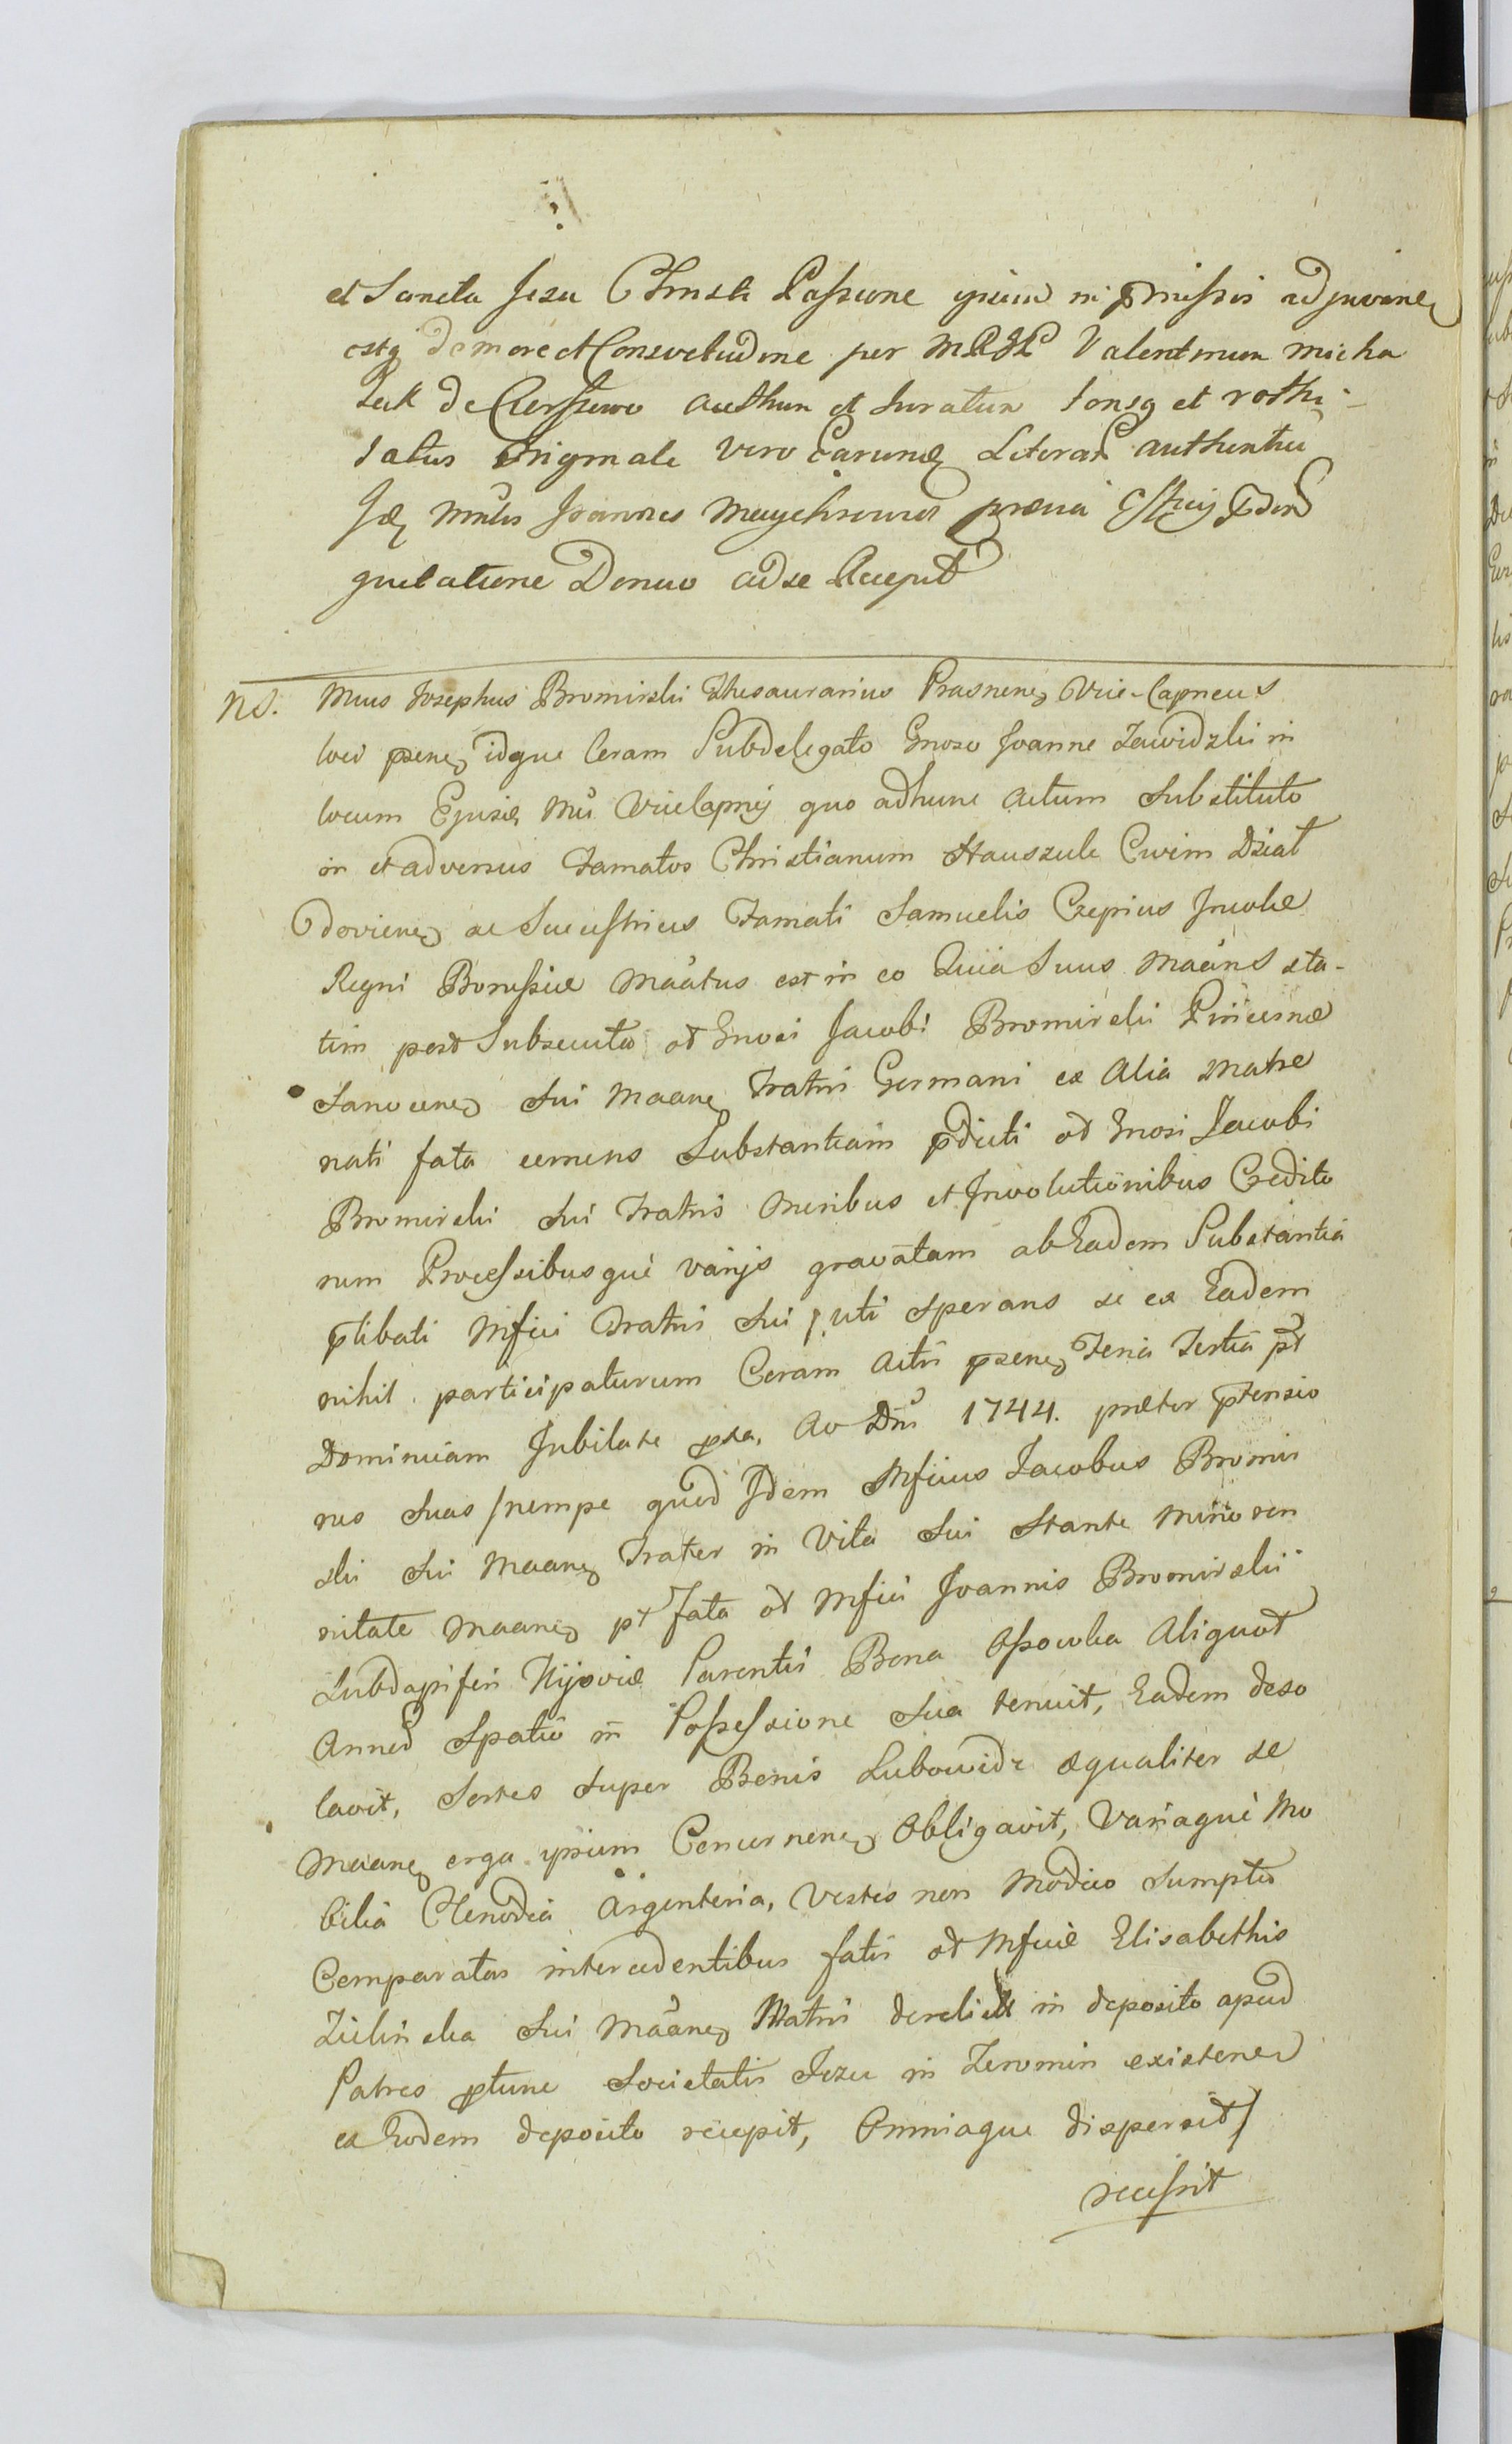 et Sancta Jesu Christi Passione ipsum in pmissis adjuvane
estq de more et Consvetudine per Valentinum Micha
authen et Juratum et rothi-
satus Originale vero Earundę Literar authenticu
Idę Joannes
quietatione Denuo ad se Recepit
NS. Mcus Josephus Bromirski Thesaurarius Prasnenę Vice-Capneus
loci psenę idque Coram Subdelegato Gnoso Joanne Zawidzki in
locum Ejusdę Mci Vicecapnei quo ad hunc actum Substituto
in et adversus Famatos Christianum Hauszule Civim Dział
dovienę ac Sucessrices Famati Samuelis Crepius Incolae
Regni Borussiae Maatus est in eo Quia Suus Maans sta-
tim post Subsecuta ol Gnosi Jacobi Bromirski Pincernae
Sanocenę Sui Maanę Fratris Germani ex Alia Matre
nati fata cernens Substantiam pdicti ol Gnosi Jacobi
Bromirski Sui Fratris Oneribus et Involutionibus Credito
rum Processibusque varijs gravatam ab Eadem Substantia
plibati Mfici Fratris Sui / uti Sperans se ex Eadem
nihil participaturum Coram Actis psenę Feria Tertia pt
Dominicam Jubilate pxa, Ao Dni 1744. praeter ptensio
nes Suas / nempe quod Idem Mficus Jacobus Bromir
ski Sui Maanę Frater in Vita Sui Stante minoren
nitate Maanę pt Fata ol Mfici Joannis Bromirskii
Subdapiferi Kijoviae Parentis Bona Ossowka Aliquot
Annor Spatio in Possessione Sua tenuit, Eadem deso
lavit, Sortes Super Bonis Lubowidz aequaliter se
Maanę erga ipsum Concernenę Obligavit, Variaque Mo
bilia Clenodia Argenteria, Vestes non Modico Sumptu
Comparatas intercedentibus fatis ol Mficae Elisabethis
Zielinska Sui Maanę Matris derelicta in deposito apud
Patres ptunc Societatis Jesu in Zeromin existenę
ex Eodem deposito recepit, Omniaque dispersit /
recessit